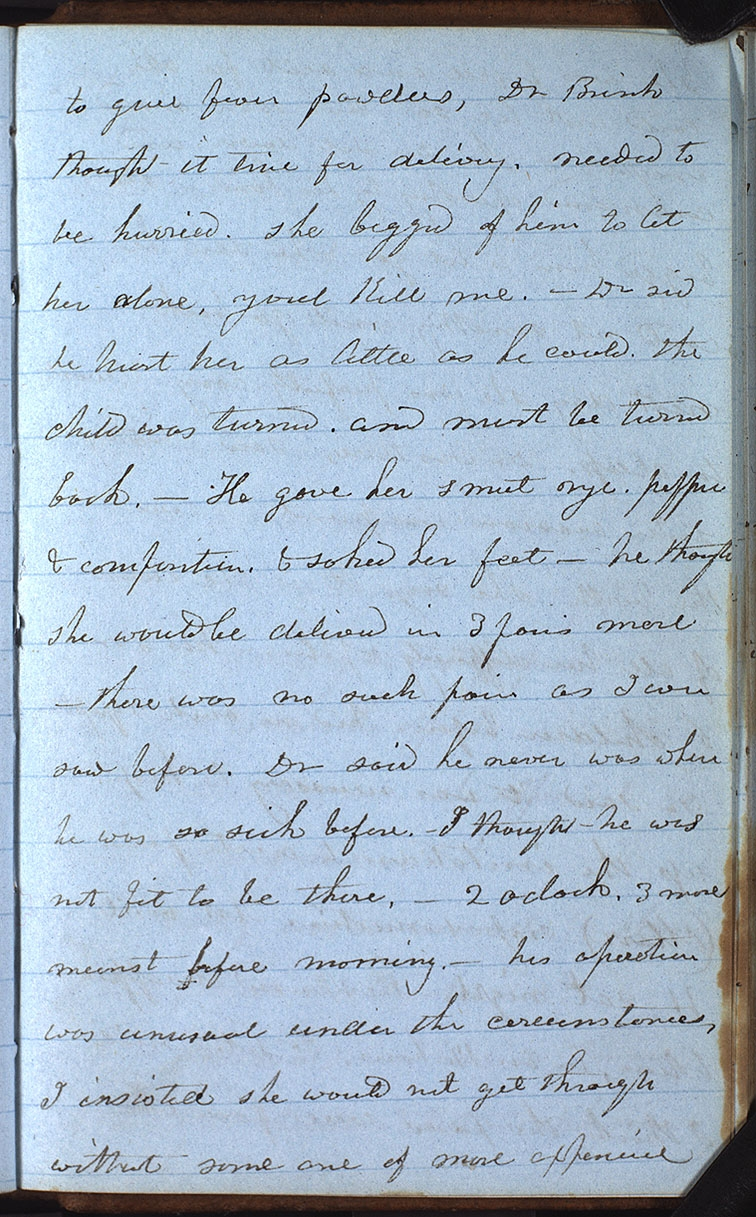 to give fever powders, Dr Brink
thought it time for delivery. needed to
be hurried. she beggd of him to let
her alone, youl Kill me. — Dr sid
he hurt her as little as he could. the
child was turnd. and must be turnd
back. — He gave her smut rye. peppre
& composition. & soked her feet — he though
she would be deliverd in 3 pains more
— there was no such pain as I ever
saw before. Dr said he never was where
he was so sick before. — I thought he was
not fit to be there, — 2 oclock. 3 more
meant before morning. — his operation
was unusual under the circumstances,
I insisted she would not get through
without some one of more experience